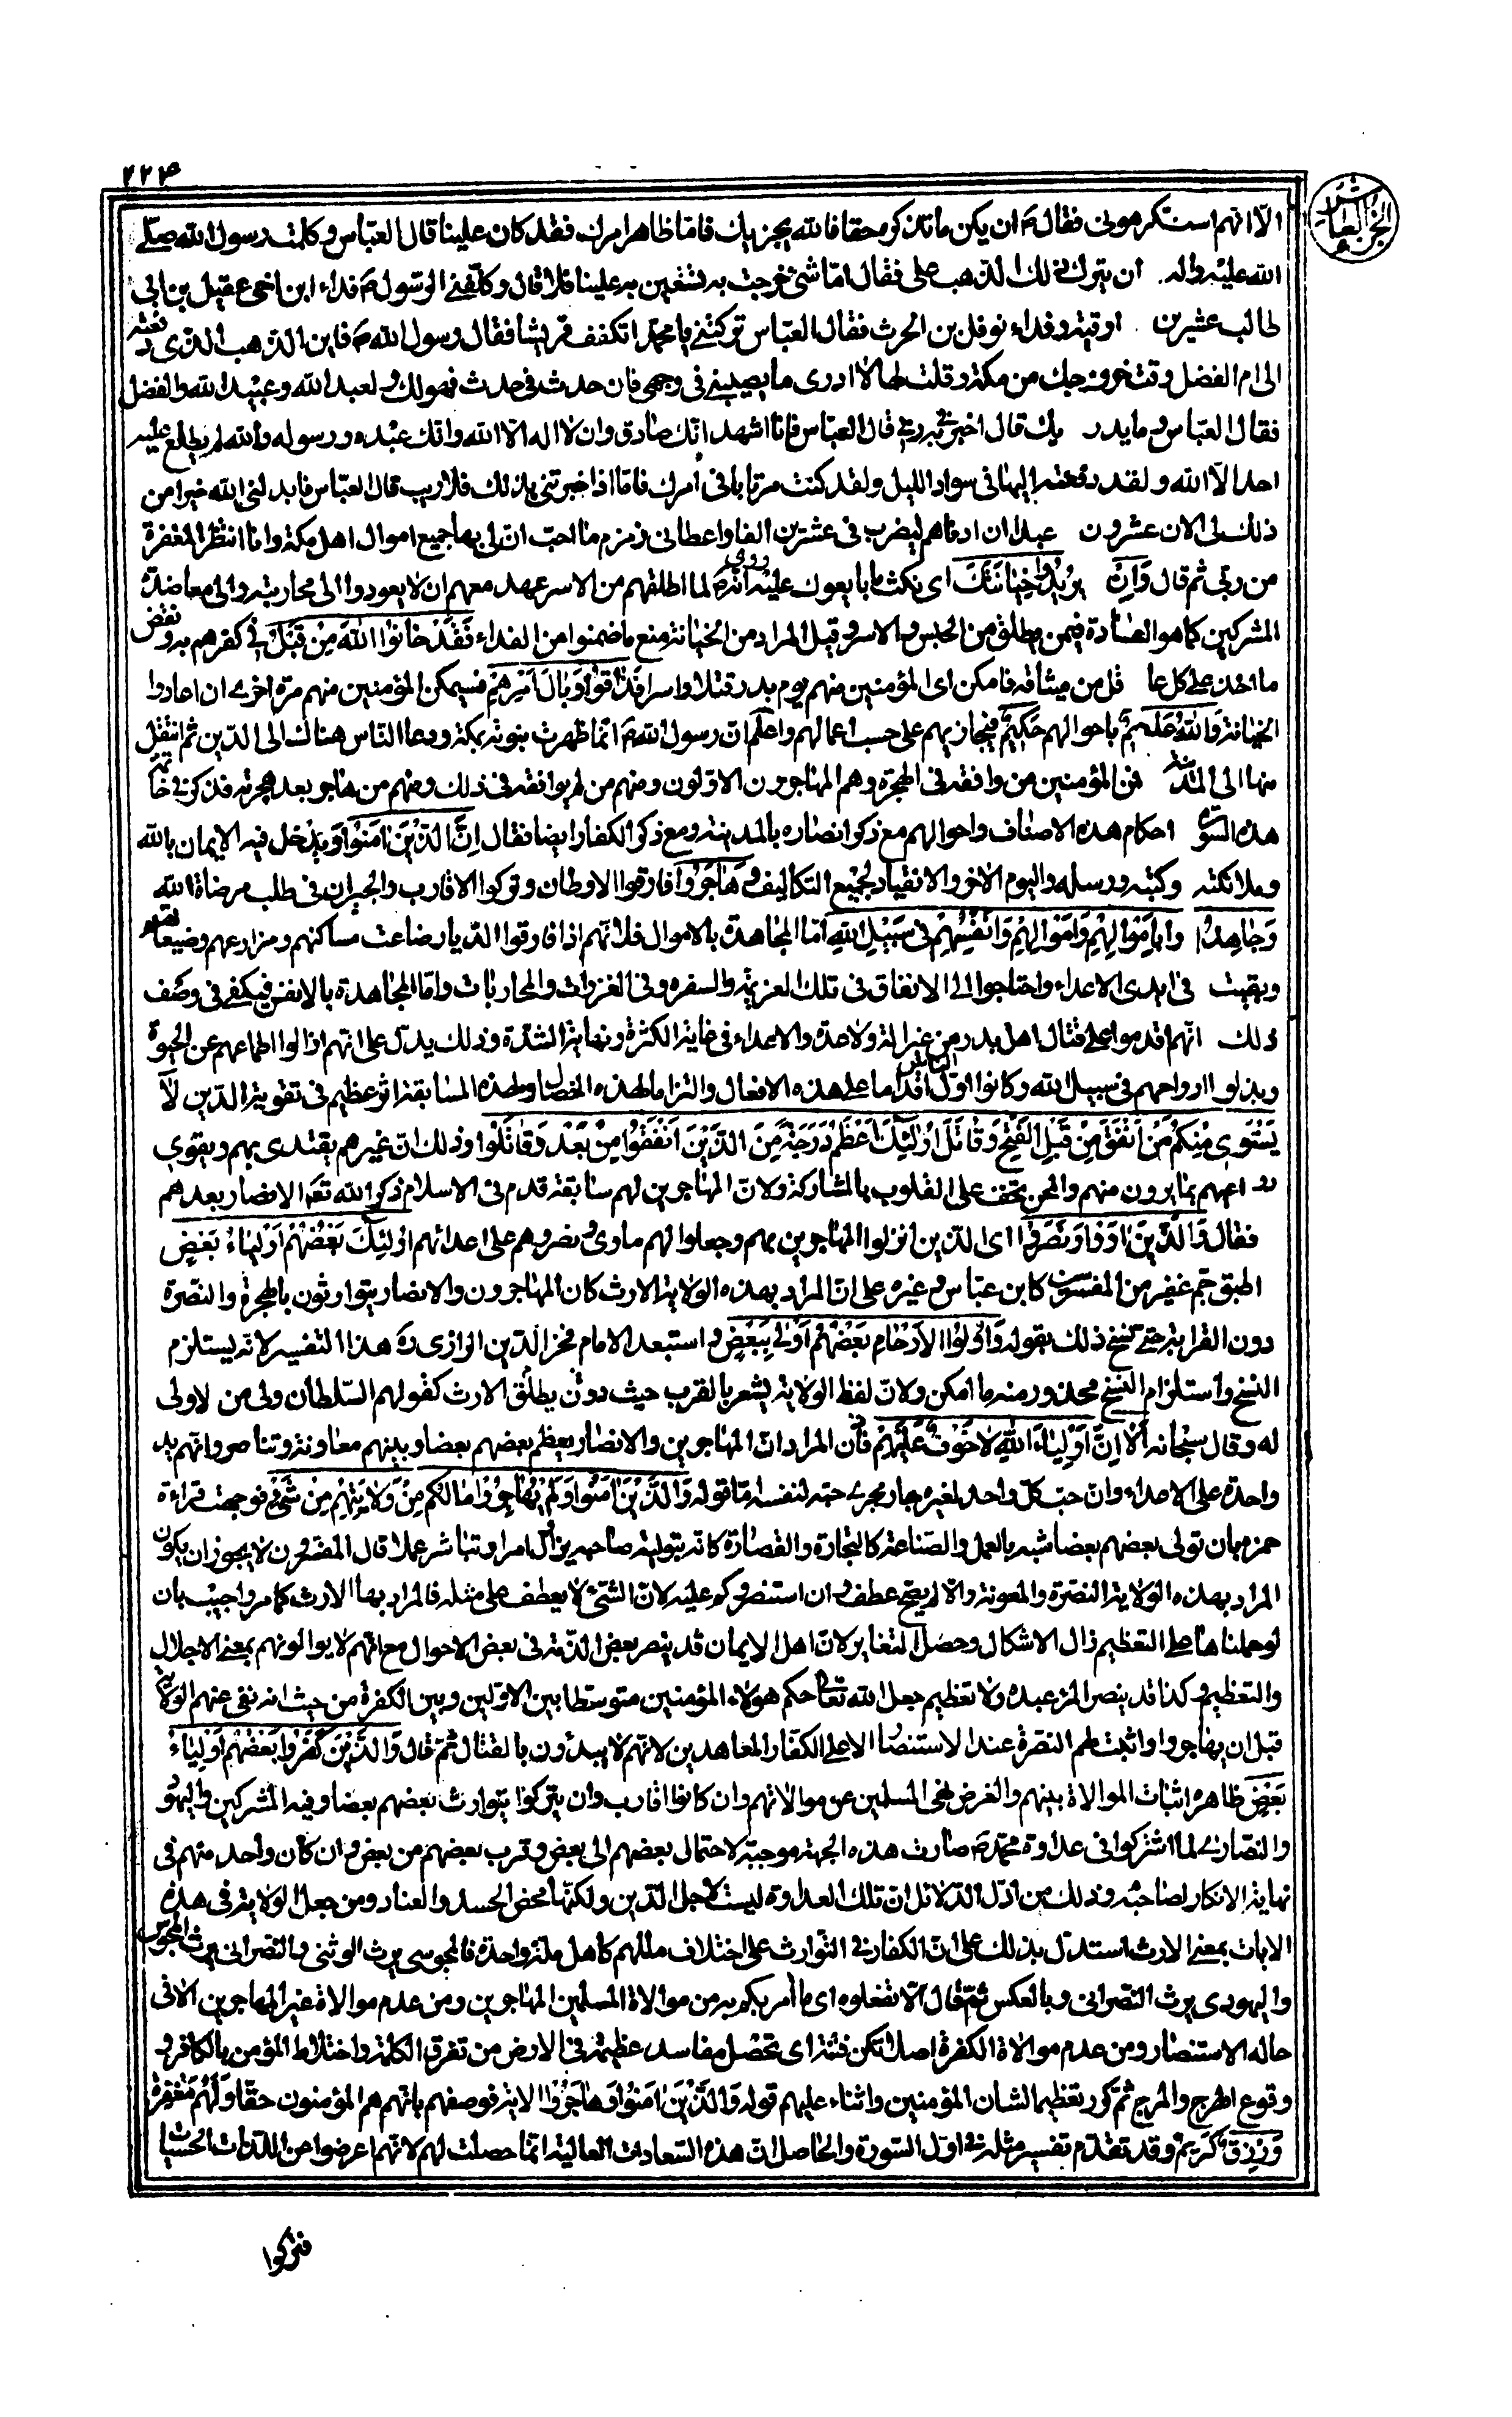 ٢٢٤
الجزء العاشر
الّا انهم استكرهونى فقال ؐ ان يكن ما تذكره حقا فالله يجزيك فامّا ظاهر امرك فقد كان علينا قال العبّاس وكلمت رسول الله صلّى
الله عليه واله ان يترك ذلك الذهب على فقال امّا شئ خرجت به لتستعين به علينا فلا قال وكلّفنى الرّسول ؐ فداء ابن اخى عقيل بن ابى
طالب عشرين اوقية وفداء نوفل بن الحرث فقال العبّاس تركتنى يا محمّد اتكفف قريشا فقال رسول الله ؐ فاين الذهب الذى دفعته
الى ام الفضل وقت خروجك من مكة وقلت لها لا ادرى ما يصيبنى فى وجهى فان حدث فى حدث فهو لك ولعبد الله وعبيد الله والفضل
فقال العبّاس وما يدريك قال اخبرنى به ربى قال العبّاس فانا اشهد انّك صادق وان لا اله الّا الله وانك عبده ورسوله والله لم يطلع عليه
احد الّا الله ولقد دفعته اليها فى سواد الليل ولقد كنت مرتابا فى امرك فامّا اذا خبرتنى بذلك فلا ريب قال العبّاس فابدلنى الله خيرا من
ذلك لى الان عشرون عبدا ان ادناهم ليضرب فى عشرين الفا واعطانى زمزم ما احبّ ان لى بها جميع اموال اهل مكة وانا انتظر المغفرة
من ربّى ثم قال وَاِنْ يُرِيدُوا خِيَانَتَكَ اى نكث ما بايعوك عليه روى انّه ؐ لما اطلقهم من الاسر عهد معهم ان لا يعودوا الى محاربته والى معاضدة
المشركين كما هو العادة فيمن يطلق من الحبس والاسر وقيل المراد من الخيانة منع ما ضمنوا من الفداء فَقَدْ خَانُوا اللهَ مِنْ قَبْلُ فى كفرهم به ونقض
ما اخذ على كل عاقل من ميثاقه فامكن اى المؤمنين منهم يوم بدر قتلا واسرا فذاقوا وبال امرهم فسيمكن المؤمنين منهم مرة اخرى ان اعادوا
الخيانة وَاللهُ عَلِيمٌ باحوالهم حَكِيمٌ فيجازيهم على حسب اعمالهم واعلم ان رسول الله ؐ انما ظهرت نبوته بمكة ودعا النّاس هناك الى الدّين ثم انتقل
منها الى المدينة فمن المؤمنين من وافقه فى الهجرة وهم المهاجرون الاوّلون ومنهم من لم يوافقه فى ذلك ومنهم من هاجر بعد هجرته فذكر فى خاتمة
هذه السّورة احكام هذه الاصناف واحوالهم مع ذكر انصاره بالمدينة ومع ذكر الكفار ايضا فقال اِنَّ الَّذِيْنَ اٰمَنُوْا ويدخل فيه الايمان بالله
وملائكته وكتبه ورسله واليوم الاخر والانقياد لجميع التكاليف وَهَاجَرُوْا فارقوا الاوطان وتركوا الاقارب والجيران فى طلب مرضاة الله
وَجَاهَدُوْا بِاَمْوَالِهِمْ وَاَنْفُسِهِمْ فِى سَبِيْلِ اللهِ امّا المجاهدة بالاموال فلانّهم اذا فارقوا الدّيار ضاعت مساكنهم ومزارعهم وضيعاتهم
وبقيت فى ايدى الاعداء واحتاجوا الى الانفاق فى تلك العزيمة والسفره وفى الغزوات والمحاربات وامّا المجاهدة بالانفس فيكفى فى وصف
ذلك انّهم اقدموا على قتال اهل بدر من غير الة ولا عدة والاعداء فى غاية الكثرة ونهاية الشدّة وذلك يدل على انّهم ازالوا اطماعهم عن الحيوة
وبذلوا ارواحهم فى سبيل الله وكانوا اوّل الناس اقداما على هذه الافعال والتزاما لهذه الخصال ولهذه المسابقة اثر عظيم فى تقوية الدّين لَا
يَسْتَوِى مِنْكُمْ مَنْ اَنْفَقَ مِنْ قَبْلِ الْفَتْحِ وَقَاتَلَ اُولٰئِكَ اَعْظَمُ دَرَجَةً مِنَ الَّذِيْنَ اَنْفَقُوا مِنْ بَعْدُ وَقَاتَلُوا وذلك انّ غيرهم يقتدى بهم ويقوى
دواعيهم بما يرون منهم والمحن تخف على القلوب بالمشاركة ولانّ المهاجرين لهم سابقة قدم فى الاسلام ذكر الله تعالى الانصار بعدهم
فقال وَالَّذِيْنَ اٰوَوْا وَنَصَرُوْا اى الذين انزلوا المهاجرين بهم وجعلوا لهم ماوى ونصروهم على اعدائهم اُولٰئِكَ بَعْضُهُمْ اَوْلِيَاءُ بَعْضٍ
اطبق جمّ غفير من المفسّرين كابن عبّاس وغيره على انّ المراد بهذه الولاية الارث كان المهاجرون والانصار يتوارثون بالهجرة والنصرة
دون القرابة حتى نسخ ذلك بقوله وَاُولُوا الْاَرْحَامِ بَعْضُهُمْ اَوْلٰى بِبَعْضٍ واستبعد الامام فخر الدّين الرازى ره هذا التفسير لانه يستلزم
النسخ واستلزام النّسخ محذور منه ما امكن ولانّ لفظ الولاية يشعر بالقرب حيث دون يطلق الارث كقولهم السّلطان ولى من لا ولى
له وقال سبحانه اَلَا اِنَّ اَوْلِيَاءَ اللهِ لَا خَوْفٌ عَلَيْهِمْ فاذن المراد انّ المهاجرين والانصار يعظم بعضهم بعضا وبينهم معاونة وتناصر وانّهم يد
واحدة على الاعداء وانّ حبّ كلّ واحد لغيره جار مجرى حبه لنفسه امّا قوله وَالَّذِيْنَ اٰمَنُوا وَلَمْ يُهَاجِرُوا مَا لَكُمْ مِنْ وَلَايَتِهِمْ مِنْ شَىْءٍ فوجهت قراءة
حمزة بان تولى بعضهم بعضا شبه بالعمل والصّناعة كالتجارة والقصارة كانه بتوليته صاحبه يزاول امرا ويباشر عملا قال المفسّرون لا يجوز ان يكون
المراد بهذه الولاية النصرة والمعونة والا لم يصح عطف وان استنصروكم عليه لانّ الشئ لا يعطف على مثله فالمراد بها الارث كما مر واجيب بان
لو حملناها على التعظيم زال الاشكال وحصل التغاير لانّ اهل الايمان قد ينصر بعض الذّمة فى بعض الاحوال مع انّهم لا يوالونهم بمعنى الاجلال
والتعظيم وكذا قد ينصر المرء عبده ولا تعظيم جعل الله تعالى حكم هؤلاء المؤمنين متوسّطا بين الاوّلين وبين الكفرة من حيث انه نفى عنهم الولاية
قبل ان يهاجروا واثبت لهم النصرة عند الاستنصار الا على الكفّار المعاهدين لانّهم لا يبدؤن بالقتال ثمّ قال وَالَّذِيْنَ كَفَرُوا بَعْضُهُمْ اَوْلِيَاءُ
بَعْضٍ ظاهره اثبات الموالاة بينهم والغرض نهى المسلمين عن موالاتهم وان كانوا اقارب وان يتركوا يتوارث بعضهم بعضا وفيه المشركين واليهود
والنصارى لما اشتركوا فى عداوة محمّد ؐ صارت هذه الجهة موجبة لاحتمال بعضهم الى بعض وقرب بعضهم من بعض وان كان واحد منهم فى
نهاية الانكار لصاحبه وذلك من ادلّ الدّلائل ان تلك العداوة ليست لاجل الدّين ولكنّها محض الحسد والعناد ومن جعل الولاية فى هذه
الايات بمعنى الارث استدلّ بذلك على انّ الكفار فى التّوارث على اختلاف مللهم كاهل ملّة واحدة فالمجوسى يرث الوثنى والنصرانى يرث المجوسى
واليهودى يرث النصرانى وبالعكس ثمّ قال اِلَّا تفعلوه اى ما امربكم به من موالاة المسلمين المهاجرين ومن عدم موالاة غير المهاجرين الا فى
حاله الاستنصار ومن عدم موالاة الكفرة اصلا تكن فتنة اى تحصل مفاسد عظيمة فى الارض من تفرق الكلمة واختلاط المؤمن بالكافر و
وقوع الهرج والمرج ثمّ كرر تعظيما لشان المؤمنين واثناء عليهم قوله وَالَّذِيْنَ اٰمَنُوا وَهَاجَرُوْا الاية فوصفهم بانّهم هم المؤمنون حقّا وَلَهُمْ مَغْفِرَةٌ
وَرِزْقٌ كَرِيْمٌ وقد تقدّم تفسير مثله فى اوّل السّورة والحاصل انّ هذه السّعادات العالية انّما حصلت لهم لانّهم اعرضوا عن اللّذات الحسّيات
فتركوا